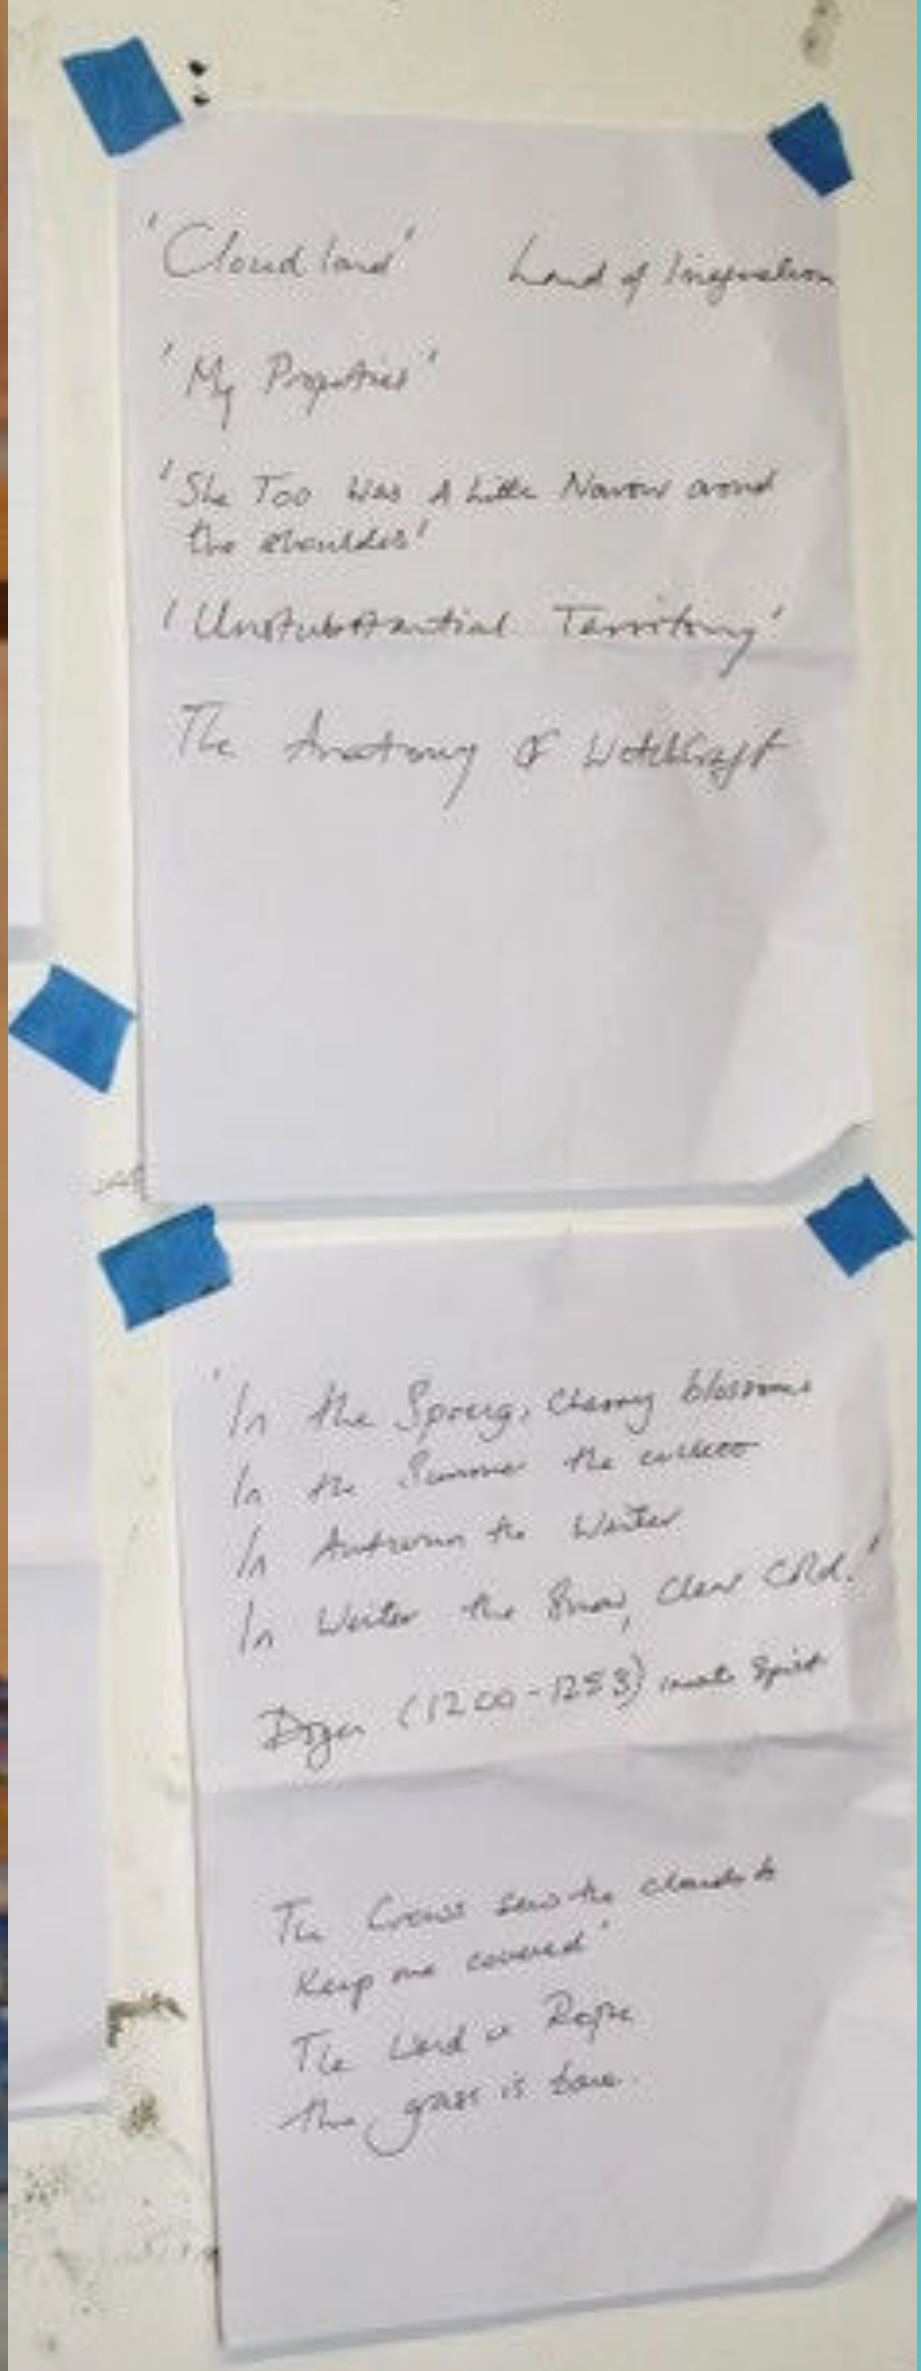 'Cloudland' Land of Imagination
'My Properties'
'She Too Was A Little Narrow around
the shoulders'
'Unstubstantial Territory'
The Anatomy of Witchcraft
"In the Spring, cherry blossoms
In the Summer the cuckoo
In Autumn the Winter
In Winter the Snow, Clear Cold."
Dogen (1200-1253) innate Spirit
The Crows sew the clouds to
Keep me covered"
The Wind a Rope
the grass is bare.